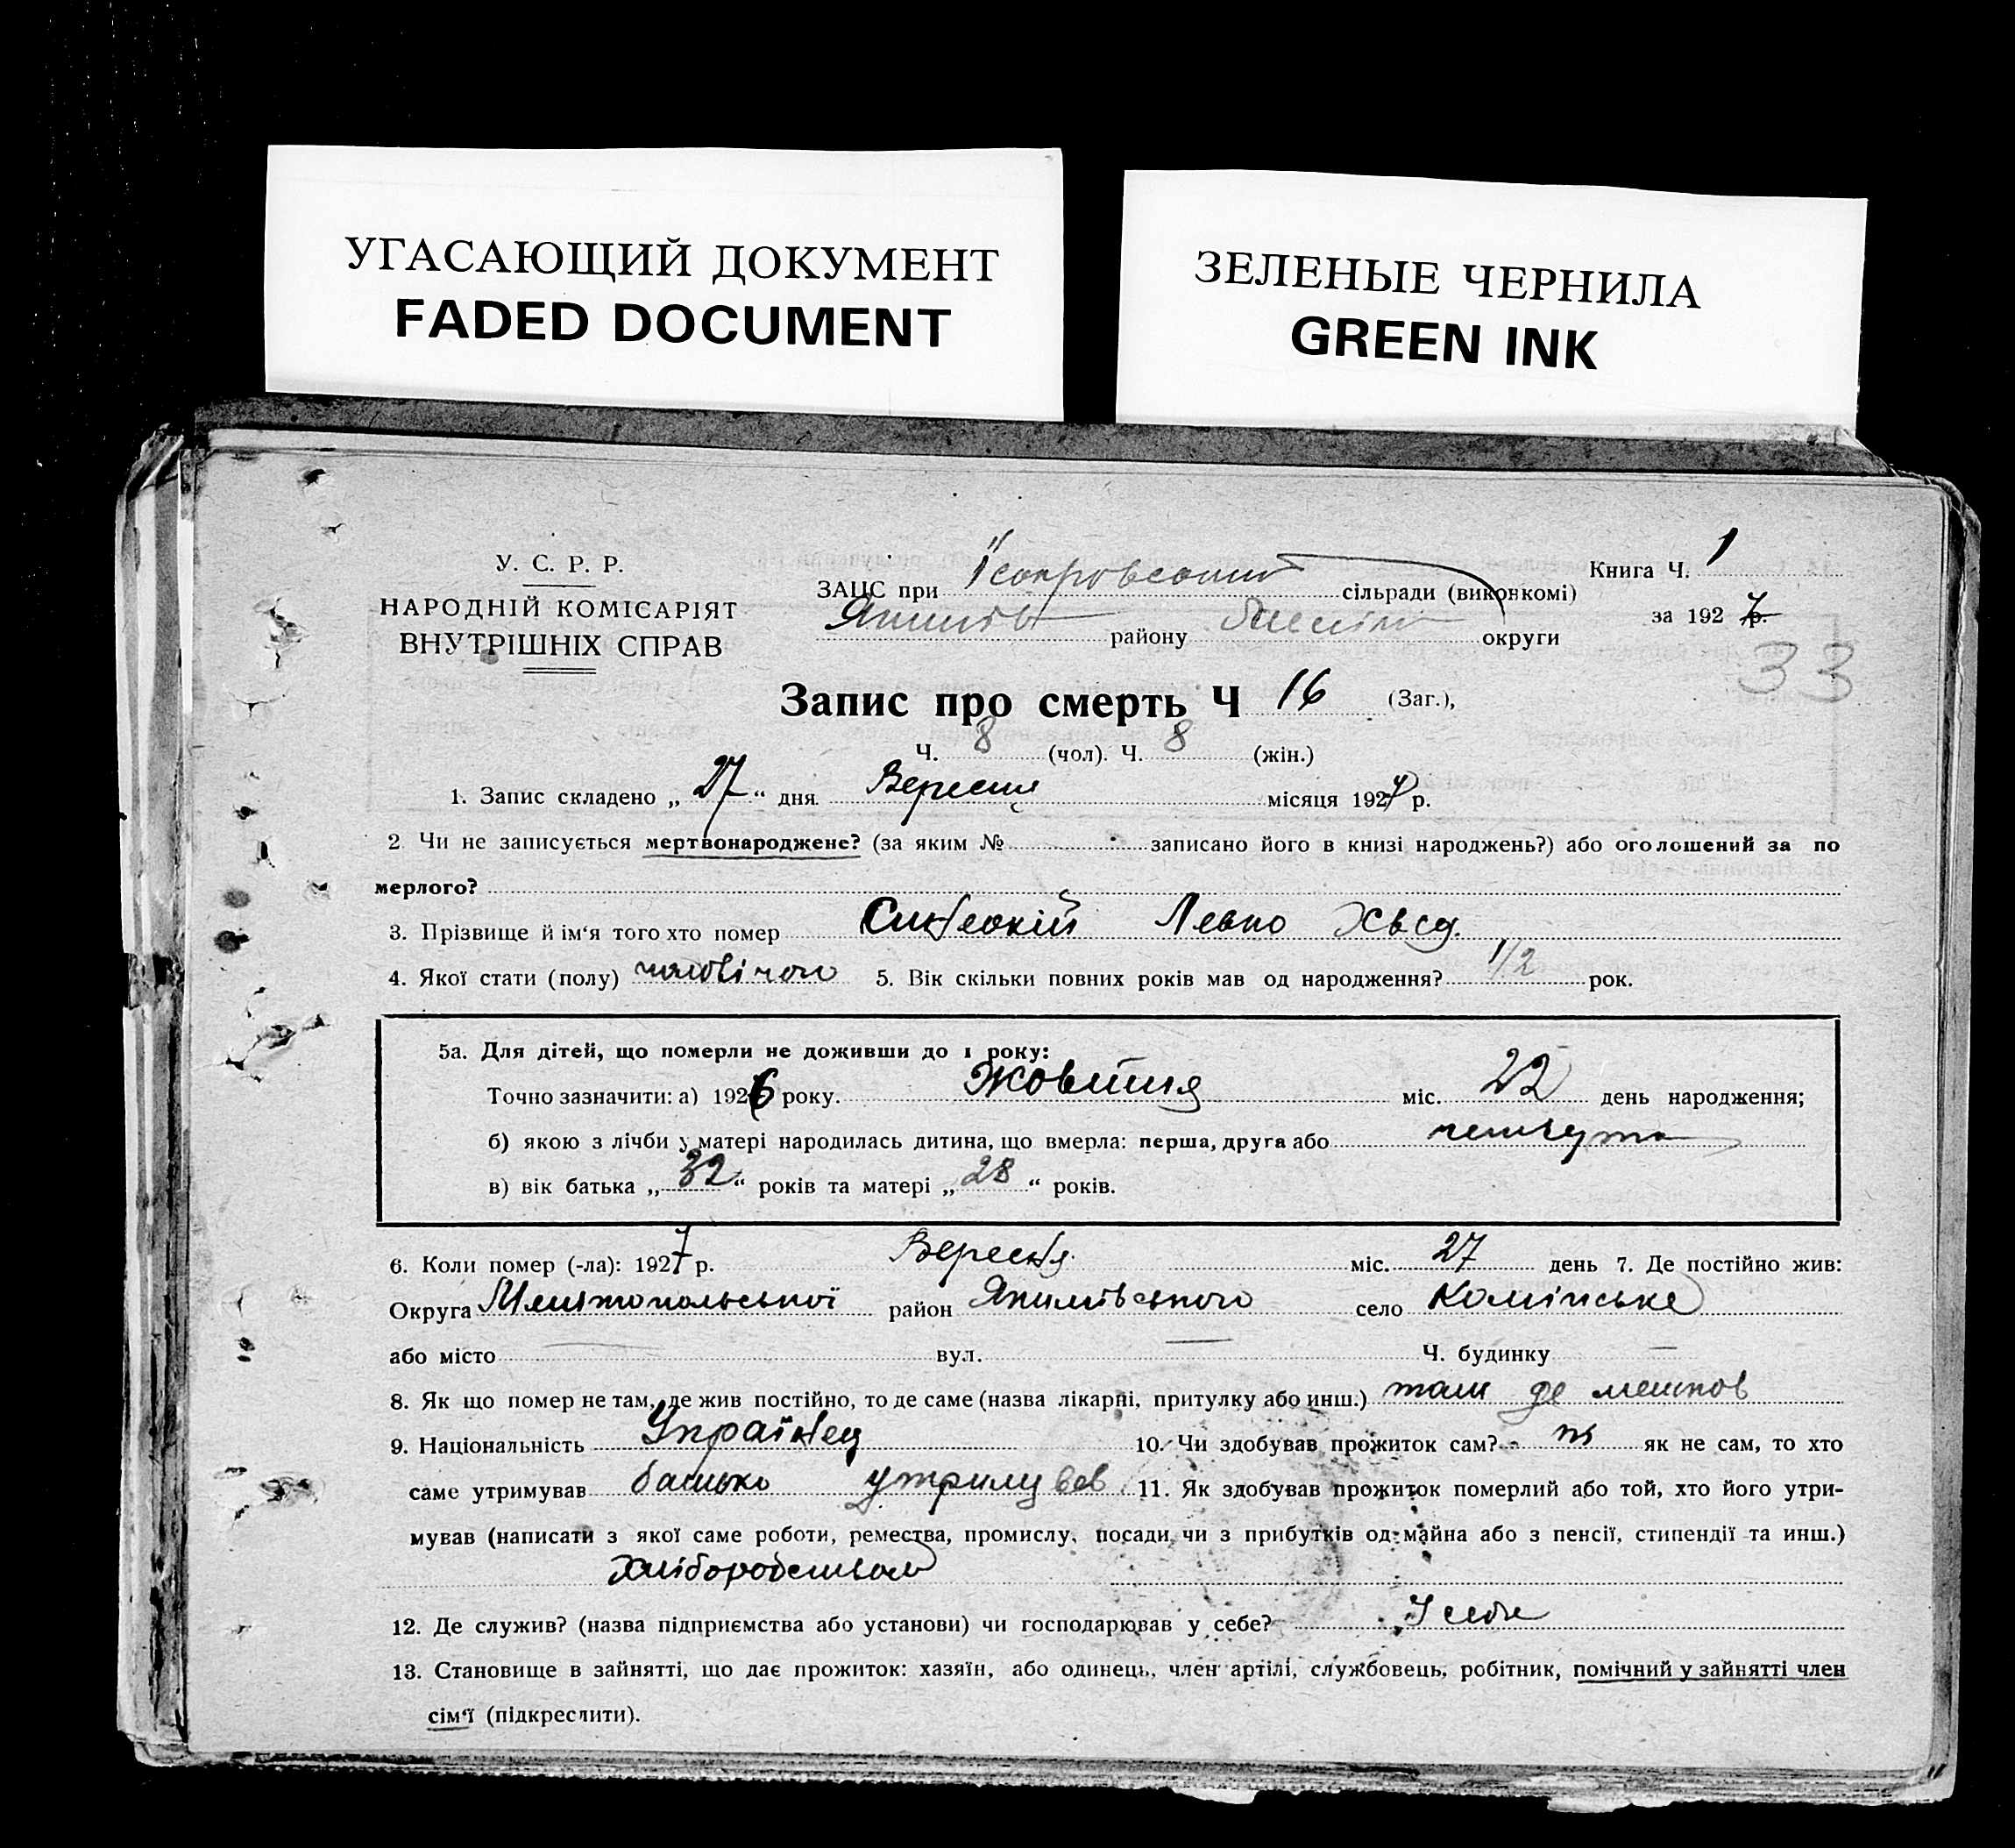 УГАСАЮЩИЙ ДОКУМЕНТ
FADED DOCUMENT
ЗЕЛЕНЫЕ ЧЕРНИЛА
GREEN INK
У. С. Р. Р.
НАРОДНІЙ КОМІСАРІЯТ
ВНУТРІШНІХ СПРАВ
ЗАЦС при сільради (виконкомі)
району округи
Книга Ч. 1
за 1927 р.
33
Запис про смерть Ч 16 (Заг.),
Ч. 8 (чол). Ч. 8 (жін.)
1. Запис складено „ 27 “ дня Вересня місяця 1927 р.
2 Чи не записується мертвонароджене? (за яким № записано його в книзі народжень?) або оголошений за по
мерлого?
3. Прізвище й ім‘я того хто помер Левко Хвед.
4. Якої стати (полу) чоловічого 5. Вік скільки повних років мав од народження? 1/2 рок.
5а. Для дітей, що померли не доживши до 1 року:
Точно зазначити: а) 1926 року. Жовтня міс. 22 день народження;
б) якою з лічби у матері народилась дитина, що вмерла: перша, друга або четверта
в) вік батька „ 32 “ років та матері „ 28 “ років.
6. Коли помер (-ла): 1927 р. Вересня міс. 27 день 7. Де постійно жив:
Округа Мелітопольської район Якимівського село
або місто вул. Ч. будинку
8. Як що помер не там, де жив постійно, то де саме (назва лікарні, притулку або инш.) там де мешков
9. Національність Українец 10. Чи здобував прожиток сам? ні як не сам, то хто
саме утримував батько утримував 11. Як здобував прожиток померлий або той, хто його утри-
мував (написати з якої саме роботи, ремества, промислу, посади чи з прибутків од майна або з пенсії, стипендії та инш.)
Хліборобством
12. Де служив? (назва підприємства або установи) чи господарював у себе? У себе
13. Становище в зайнятті, що дає прожиток: хазяїн, або одинець, член артілі, службовець, робітник, помічний у зайнятті член
сім‘ї (підкреслити).